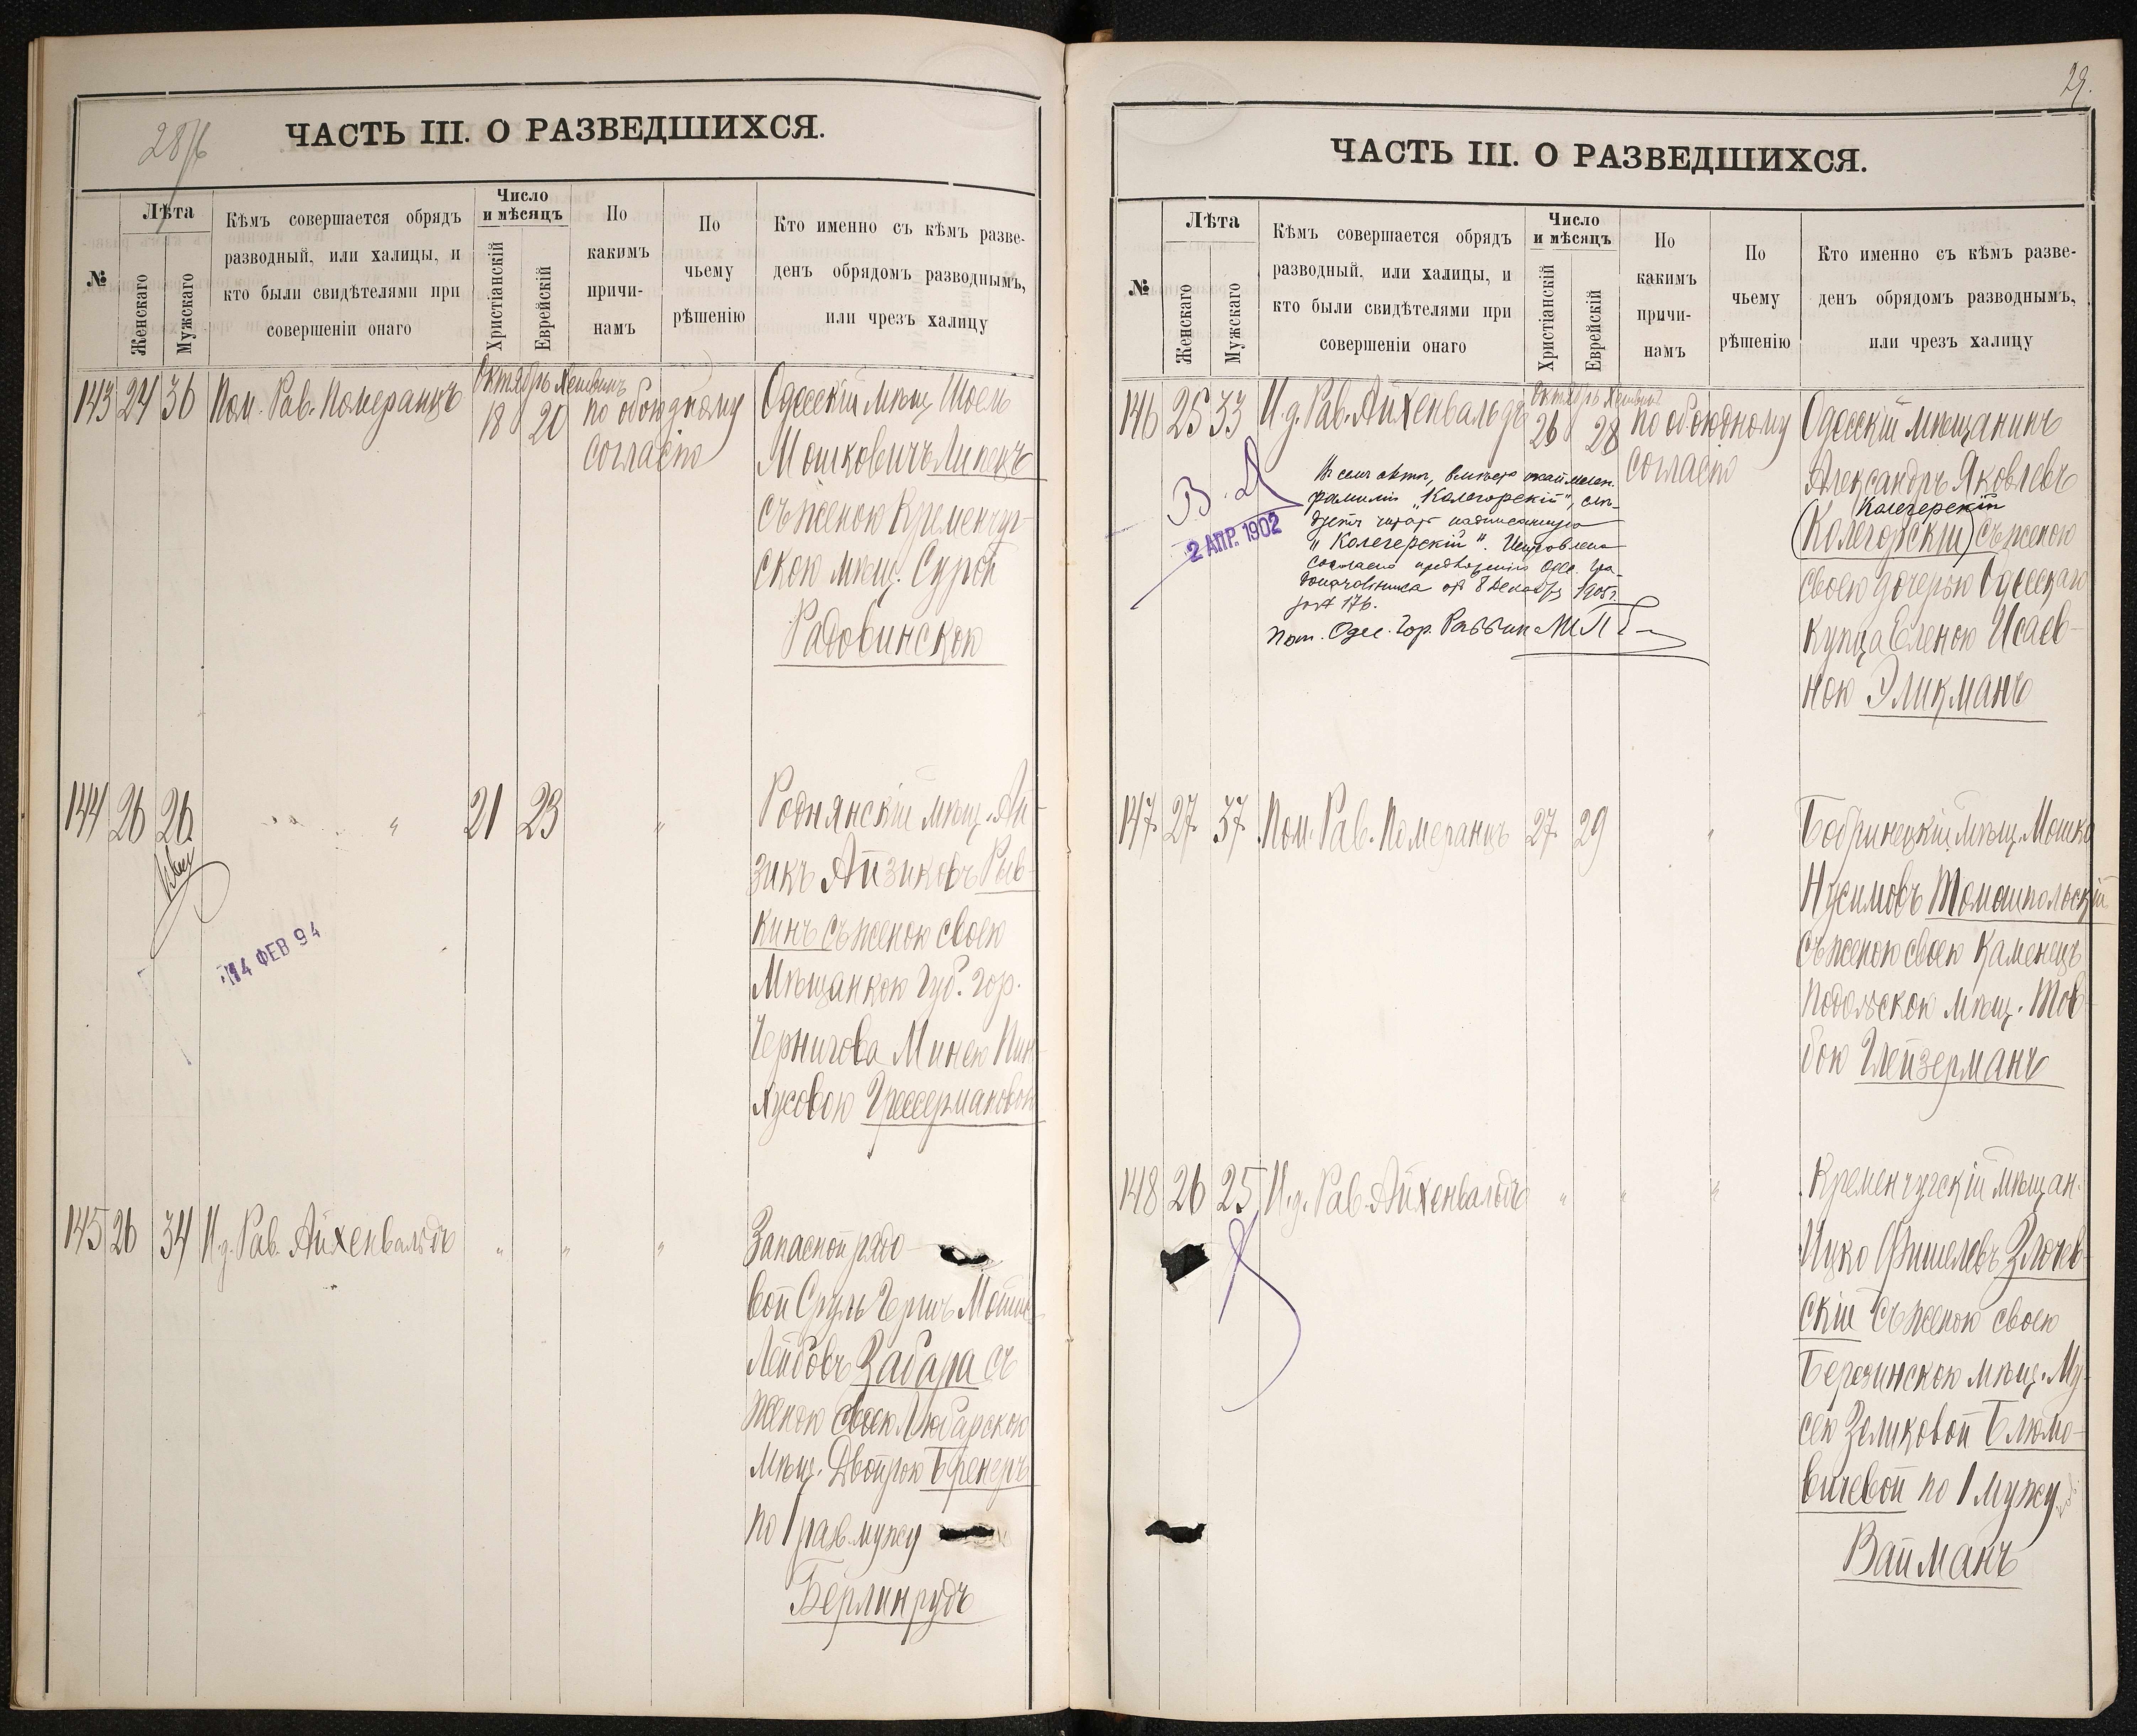 28/6
ЧАСТЬ III. О РАЗВЕДШИХСЯ.
№
Лѣта
Женскаго
Мужскаго
Кѣмъ совершается обрядъ
разводный, или халицы, и
кто были свидѣтелями при
совершеніи онаго
Число
и мѣсяцъ
Христіанскій
Еврейскій
По
какимъ
причи-
намъ
По
чьему
рѣшенію
Кто именно съ кѣмъ разве-
денъ обрядомъ разводнымъ,
или чрезъ халицу
143 24 36 Пом. Рав. Померанцъ
Октябрь Хешвинъ
18 20
по обоюдному
согласію
Одесскій мѣщ. Шоель
Мошковичъ Липекъ
съ женою Кременчуг-
скою мѣщ. Сурой
Радовинской
144 26 26 " 21 23 "
Роднянскій мѣщ. Ай-
зикъ Айзиковъ Рыв-
кинъ съ женою своею
Мѣщанкою Губ. гор.
Чернигова Минею Пин-
хусовою Грессермановой
14 ФЕВ 94
145 26 34 И.д. Рав. Айхенвальдъ " " "
Запасной рядо-
вой Сруль Гершъ Мошко
Лейбовъ Забара съ
женою своею Любарскою
Мѣщ. Двойрою Бренеръ
по 1 разв. мужу
Берлинрудъ
29.
ЧАСТЬ III. О РАЗВЕДШИХСЯ.
№
Лѣта
Женскаго
Мужскаго
Кѣмъ совершается обрядъ
разводный, или халицы, и
кто были свидѣтелями при
совершеніи онаго
Число
и мѣсяцъ
Христіанскій
Еврейскій
По
какимъ
причи-
намъ
По
чьему
рѣшенію
Кто именно съ кѣмъ разве-
денъ обрядомъ разводнымъ,
или чрезъ халицу
146 25 33 И.д. Рав. Айхенвальдъ
Октябрь Хешвинъ
26 28
по обоюдному
согласію
Одесскій мѣщанинъ
Александръ Яковлевъ
Колегерскій
(Колегорскій) съ женою
своею дочерью Одесскаго
купца Еленою Исаев-
ною Эликманъ
2 АПР. 1902
Въ семъ актѣ, вмѣсто
фамиліи "Колегорскій", слѣ-
дуетъ читать надписанную
"Колегерскій". Исправлено
согласно предложенію Одес. Гра-
доначальника отъ 8 Декабря 1905 г.
за № 176.
Пом. Одес. Гор. Раввин
147 27 37 Пом. Рав. Померанцъ 27 29 "
Бобринецкій мѣщ. Мошко
Нусимовъ Томашпольскій
съ женою своею Каменецъ
Подольской мѣщ. Тов-
бою Глейзерманъ
148 26 25 И.д. Рав. Айхенвальдъ " " "
Кременчугскій мѣщан.
Ицко Фишелевъ Злочев-
скій съ женою своею
Березинскою мѣщ. Му-
сею Зеликовой Блюмо-
вичевой по 1 мужу
Вайманъ